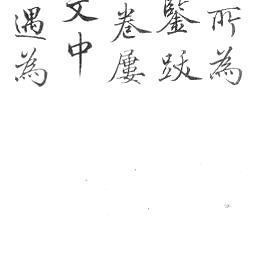 所為
鑒跋
卷屢
文中
遇為